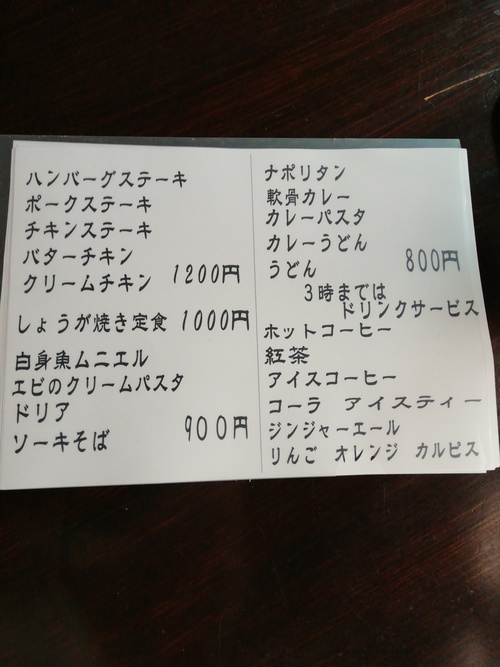 ハンバーグステーキ
ポークステーキ
チキンステーキ
バターチキン
クリームチキン 1200円
しょうが焼き定食 1000円
白身魚ムニエル
エビのクリームパスタ
ドリア
ソーキそば 900円
ナポリタン
軟骨カレー
カレーパスタ
カレーうどん
うどん 800円
3時までは
ドリンクサービス
ホットコーヒー
紅茶
アイスコーヒー
コーラ アイスティー
ジンジャーエール
りんご オレンジ カルピス